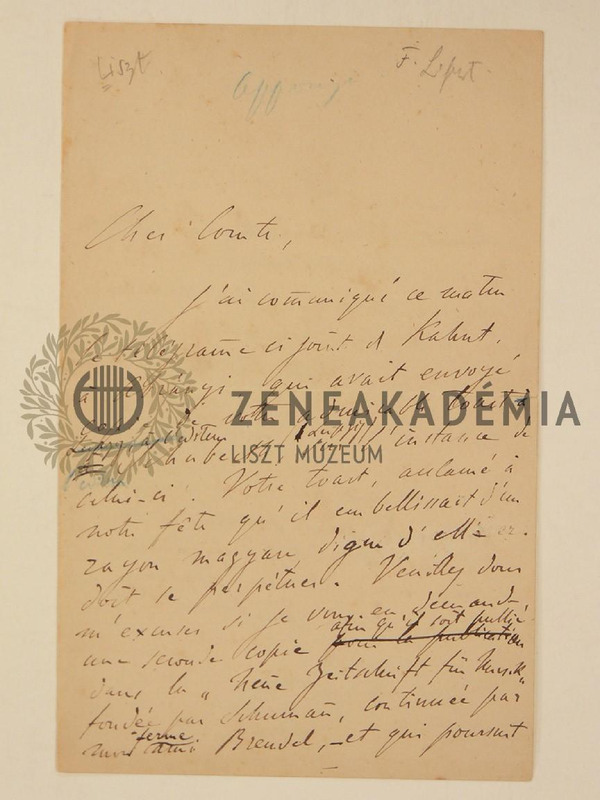 Liszt
F. Lipert
Cher Comte,
J'ai communiqué ce matin
le télégramme ci joint d Kahnt,
à Ábrányi qui avait envoyé
votre admirable toast à
ZENEAKADÉMIA
LISZT MÚZEUM
instance de
celui-ci. Votre toast, acclamé à
notre fête qu'il embellissait d'un
rayon magyare digne d'elle
doit se perpétuer. Veuillez donc
m'excuser si je vous en demande
une seconde copie afin qu'il soit publié
pour la publication
dans la „Neue Zeitschrift für Musik"
fondée par Schumañ, continuée par
mon ferme ami Brendel, – et qui poursuit